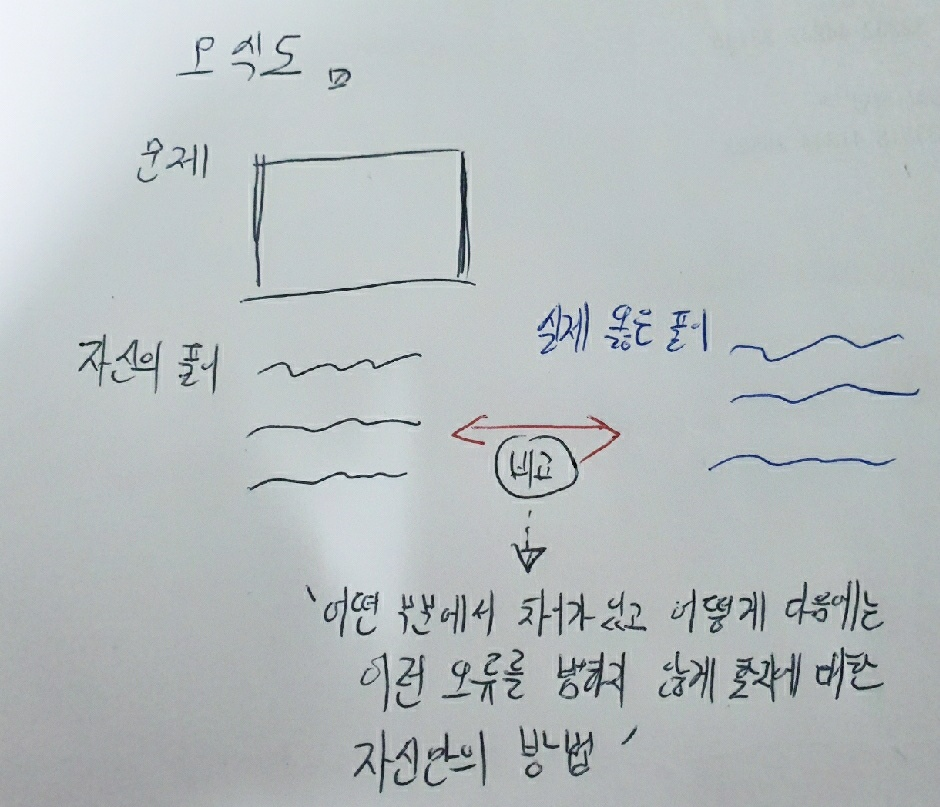 모식도
문제
자신의 풀이
실제 옳은 풀이
비교
'어떤 부분에서 차이가 있고 어떻게 다음에는
이런 오류를 범하지 않게 할지에 대한
자신만의 방법'